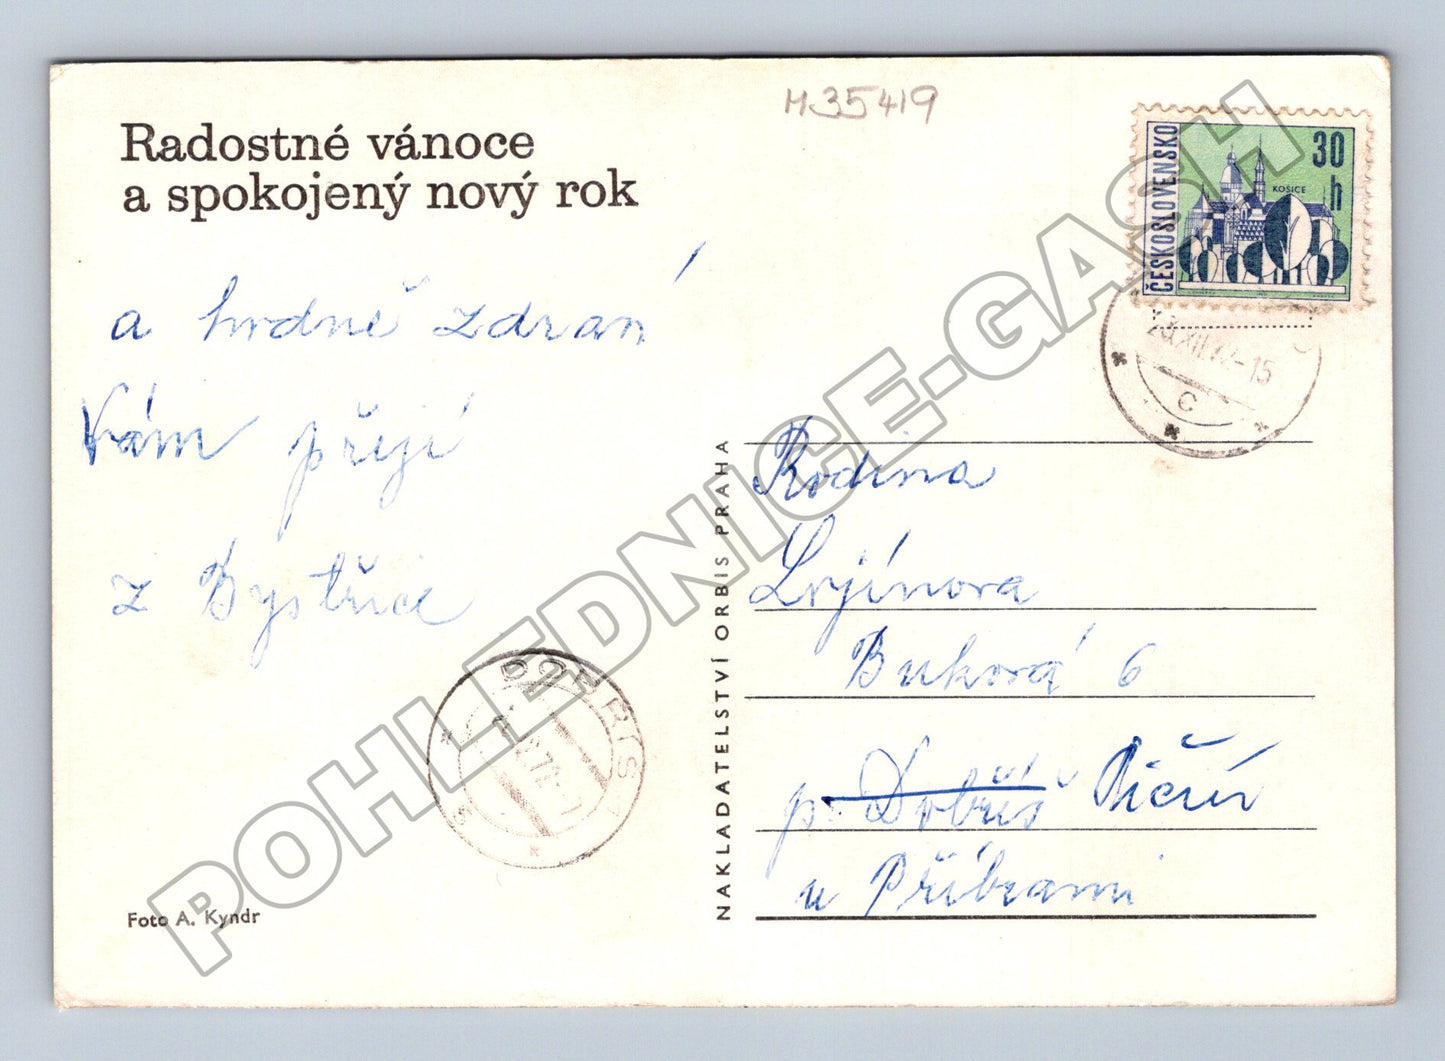 M35419
Radostné vánoce
a spokojený nový rok
a hodně zdraví
Vám přejí
z Bystřice
ČESKOSLOVENSKO
30
h
KOŠICE
23.XII.72-15
C
Rodina
Buková 6
p. Dobříš Pičín
u Příbrami
NAKLADATELSTVÍ ORBIS PRAHA
DOBŘÍŠ
Foto A. Kyndr
POHLEDNICE-GASH